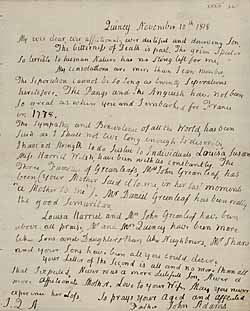 Quincy November 10th 1818
My ever dear, ever affectionate, ever dutiful and deserving Son
The bitterness of Death is past. The grim Spector
So terrible to human Nature has no Sting left for me.
My consolations are more than I can number.
The Separation cannot be So long as twenty Separations
heretofore. The Pangs and the Anguish have not been
So great as when you and I embarked for France
in 1778.
The Sympathy and Benevolence of all the World has been
Such as I Shall not live long enough to describe. I
have not Strength to do Justice to Individuals. Louisa Susan
Miss Harriet Welsh have been with Us constantly. The
Three Families of Greenleafs, Mrs John Greenleaf has
been (your Mother Said it to me in her last moments
"a Mother to me"). Mr Daniel Greenleaf has been really
the good Samaritan
Louisa Harriet and Mrs John Greenleaf have been
above all praise. Mr and Mrs Quincy have been more
like Sons and Daughters than like Neighbours. Mr Shaw
and your Sons have been all you could desire.
Your Letter of the Second is all and no more than all
that I expected. Never was a more dutiful Son. Never a
more Affectionate Mother. Love to your Wife. May you never
experience her Loss.
So prays your Aged and afflicted
J. Q. A
Father John Adams